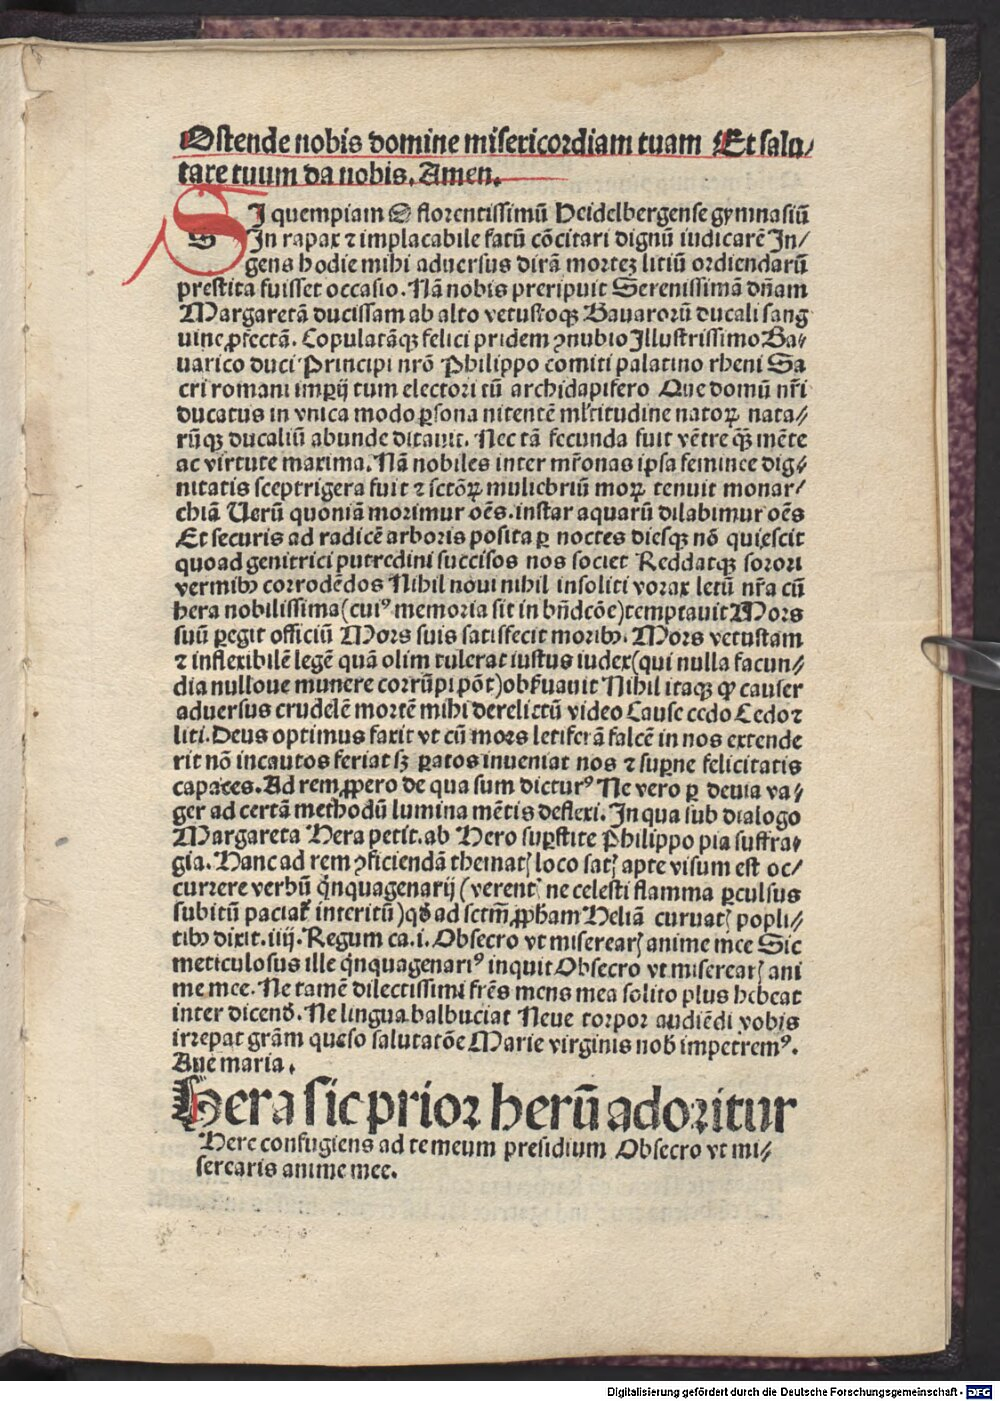 Ostende nobis domine misericordiam tuam Et salu⸗
tare tuum da nobis. Amen.
SI quempiam O florentissimū Heidelbergense gymnasiū
In rapax ⁊ implacabile fatū cōcitari dignū iudicarē In⸗
gens hodie mihi aduersus dirā morteʒ litiū ordiendarū
prestita fuisset occasio. Nā nobis preripuit Serenissimā dn̄am
Margaretā ducissam ab alto vetustoqꝫ Bauarorū ducali sang
uine ꝓfectā. Copulatāqꝫ felici pridem ꝯnubio Illustrissimo Ba⸗
uarico duci Principi nr̄o Philippo comiti palatino rheni Sa
cri romani imꝑij tum electori tū archidapifero Que domū nr̄i
ducatus in vnica modo ꝑsona nitentē ml̄titudine natoꝝ nata⸗
rūqꝫ ducaliū abunde ditauit. Nec tā fecunda fuit vētre qꝫ̄ mēte
ac virtute maxima. Nā nobiles inter mr̄onas ipsa feminee dig⸗
nitatis sceptrigera fuit ⁊ sctōꝝ muliebriū moꝝ tenuit monar⸗
chiā Uerū quoniā morimur oēs. instar aquarū dilabimur oēs
Et securis ad radicē arboris posita ꝑ noctes diesqꝫ nō quiescit
quoad genitrici putredini succisos nos societ Reddatqꝫ sorori
vermibꝰ corrodēdos Nihil noui nihil insoliti vorax letū nr̄a cū
hera nobilissima (cuiꝰ memoria sit in bn̄dcōe) temptauit Mors
suū ꝑegit officiū Mors suis satisfecit moribꝰ. Mors vetustam
⁊ inflexibilē legē quā olim tulerat iustus iudex (qui nulla facun⸗
dia nulloue munere corrūpi pōt) obẜuauit Nihil itaqꝫ ꝙ causer
aduersus crudelē mortē mihi derelictū video Cause cedo Cedo ⁊
liti. Deus optimus faxit vt cū mors letiferā falcē in nos extende
rit nō incautos feriat sꝫ ꝑatos inueniat nos ⁊ suꝑne felicitatis
capaces. Ad rem ꝓpero de qua sum dicturꝰ Ne vero ꝑ deuia va⸗
ger ad certā methodū lumina mētis deflexi. In qua sub dialogo
Margareta Hera petit. ab Hero suꝑstite Philippo pia suffra⸗
gia. Hanc ad rem ꝯficiendā themaťʒ loco satʒ apte visum est oc⸗
currere verbū qͥnquagenarij (verentʒ ne celesti flamma ꝑculsus
subitū paciať interitū) qđ ad sctm̄ ꝓph̄am Heliā curuatʒ popli⸗
tibꝰ dixit. iiij. Regum ca. i. Obsecro vt misearʒ anime mee Sic
meticulosus ille qͥnquagenariꝰ inquit Obsecro vt misearearʒ ani
me mee. Ne tamē dilectissimi fr̄es mens mea solito plus hebeat
inter dicenđ. Ne lingua balbuciat Neue torpor audiēdi vobis
irrepat gr̄am queso salutatōe Marie virginis nob̄ impetremꝰ.
Aue maria.
Hera sic prior herū adoritur
Here confugiens ad te meum presidium Obsecro vt mi⸗
serearis anime mee.
Digitalisierung gefördert durch die Deutsche Forschungsgemeinschaft - DFG